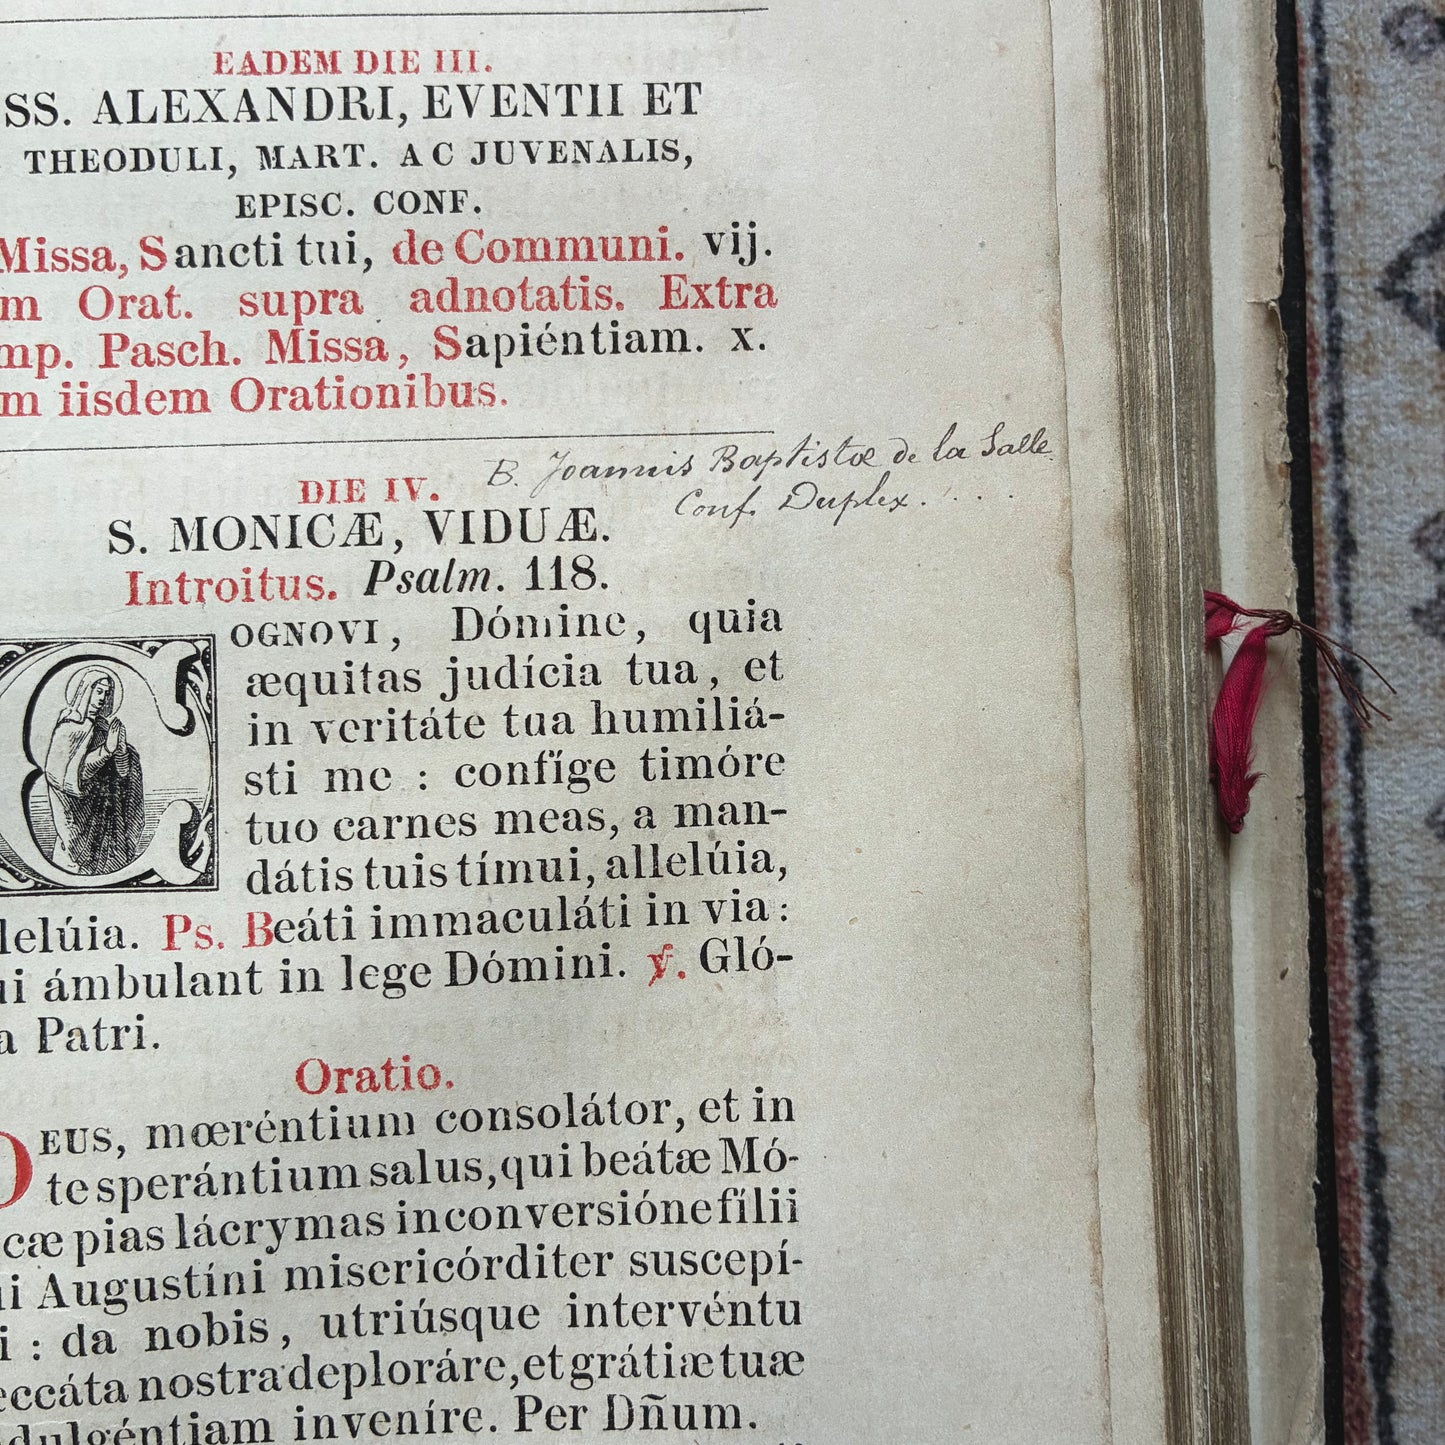 EADEM DIE III.
SS. ALEXANDRI, EVENTII ET
THEODULI, MART. AC JUVENALIS,
EPISC. CONF.
Missa, Sancti tui, de Communi. vij.
m Orat. supra adnotatis. Extra
mp. Pasch. Missa, Sapiéntiam. x.
m iisdem Orationibus.
B. Joannis Baptistæ de la Salle
Conf. Duplex. . . .
DIE IV.
S. MONICÆ, VIDUÆ.
Introitus. Psalm. 118.
COGNOVI, Dómine, quia
æquitas judícia tua, et
in veritáte tua humiliá-
sti me : confíge timóre
tuo carnes meas, a man-
dátis tuis tímui, allelúia,
lelúia. Ps. Beáti immaculáti in via :
ui ámbulant in lege Dómini. ℣. Gló-
a Patri.
Oratio.
DEUS, mœréntium consolátor, et in
te sperántium salus, qui beátæ Mó-
cæ pias lácrymas in conversióne fílii
ii Augustíni misericórditer suscepí-
i : da nobis, utriúsque intervéntu
eccáta nostra deploráre, et grátiæ tuæ
dulgéntiam inveníre. Per Dñum.